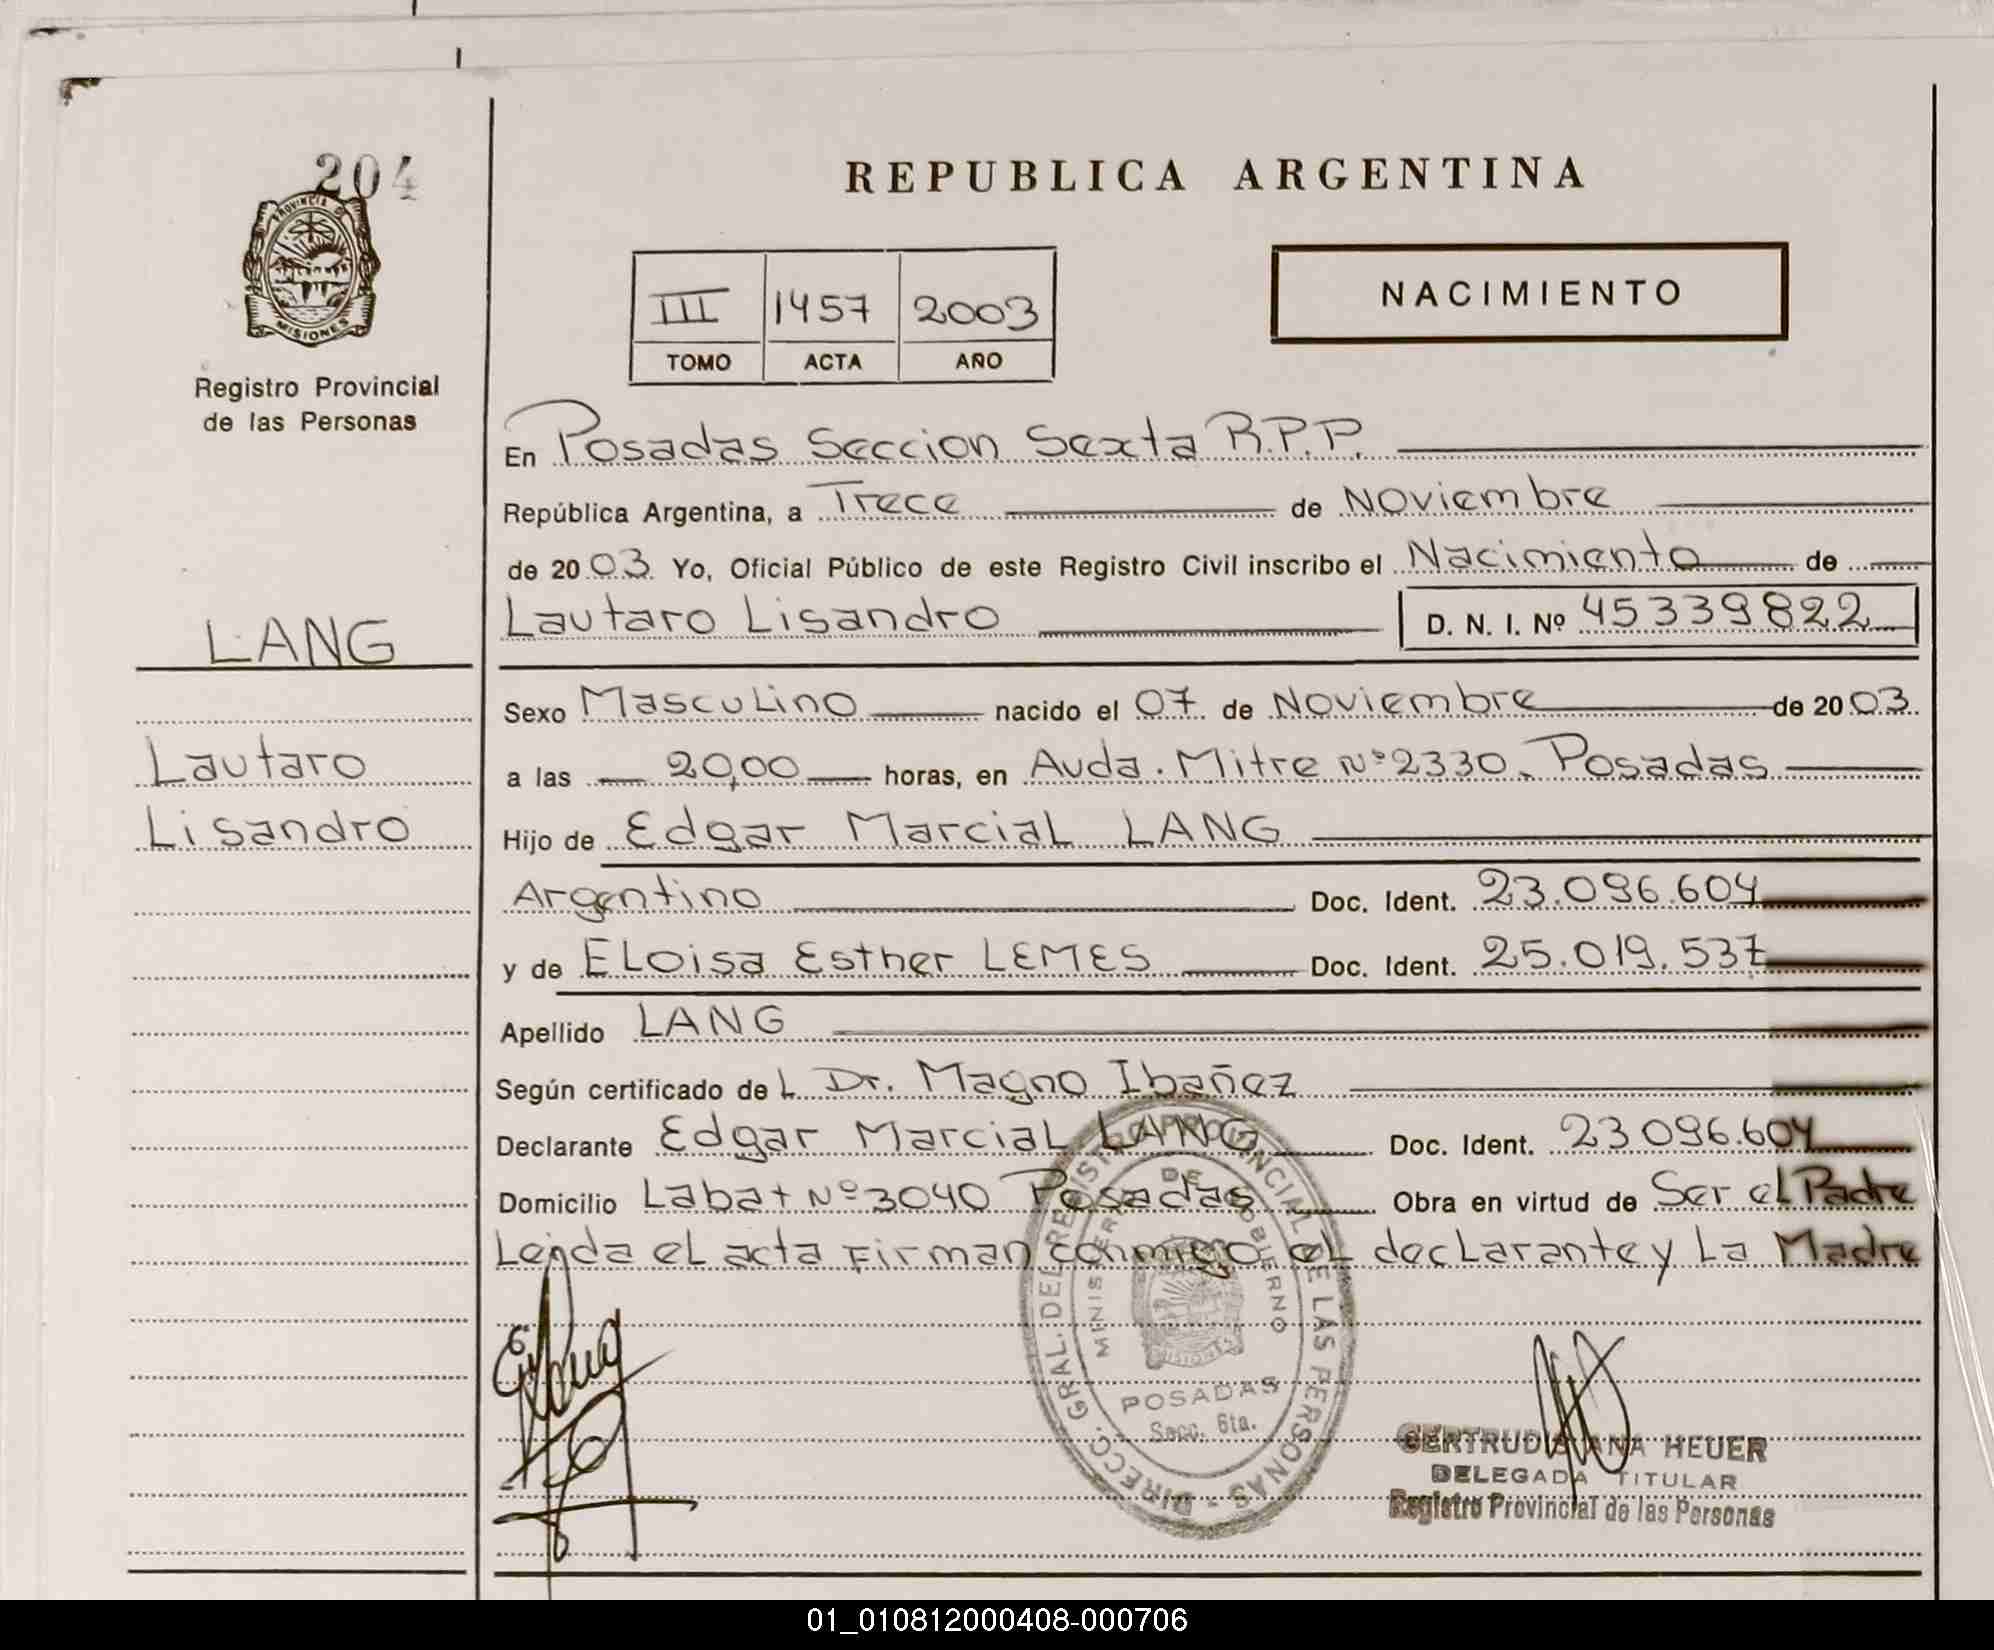 204
PROVINCIA DE
MISIONES
Registro Provincial
de las Personas
REPUBLICA ARGENTINA
III 1457 2003
TOMO ACTA AÑO
NACIMIENTO
En Posadas Seccion Sexta R.P.P.
República Argentina, a Trece de Noviembre
de 2003 Yo, Oficial Público de este Registro Civil inscribo el Nacimiento de
Lautaro Lisandro D. N. I. Nº 45339822
LANG
Lautaro
Lisandro
Sexo Masculino nacido el 07 de Noviembre de 2003
a las 20,00 horas, en Avda. Mitre Nº 2330. Posadas
Hijo de Edgar Marcial LANG
Argentino Doc. Ident. 23.096.604
y de Eloisa Esther LEMES Doc. Ident. 25.019.537
Apellido LANG
Según certificado del Dr. Magno Ibañez
Declarante Edgar Marcial LANG Doc. Ident. 23096.604
Domicilio Labat Nº 3040 Posadas Obra en virtud de Ser el Padre
Leida el acta Firman conmigo el declarante y La Madre
DIRECC. GRAL. DEL REGISTRO PROVINCIAL DE LAS PERSONAS -
MINISTERIO DE GOBIERNO
MISIONES
POSADAS
Secc. 6ta.
ANA HEUER
DELEGADA TITULAR
Registro Provincial de las Personas
01_010812000408-000706